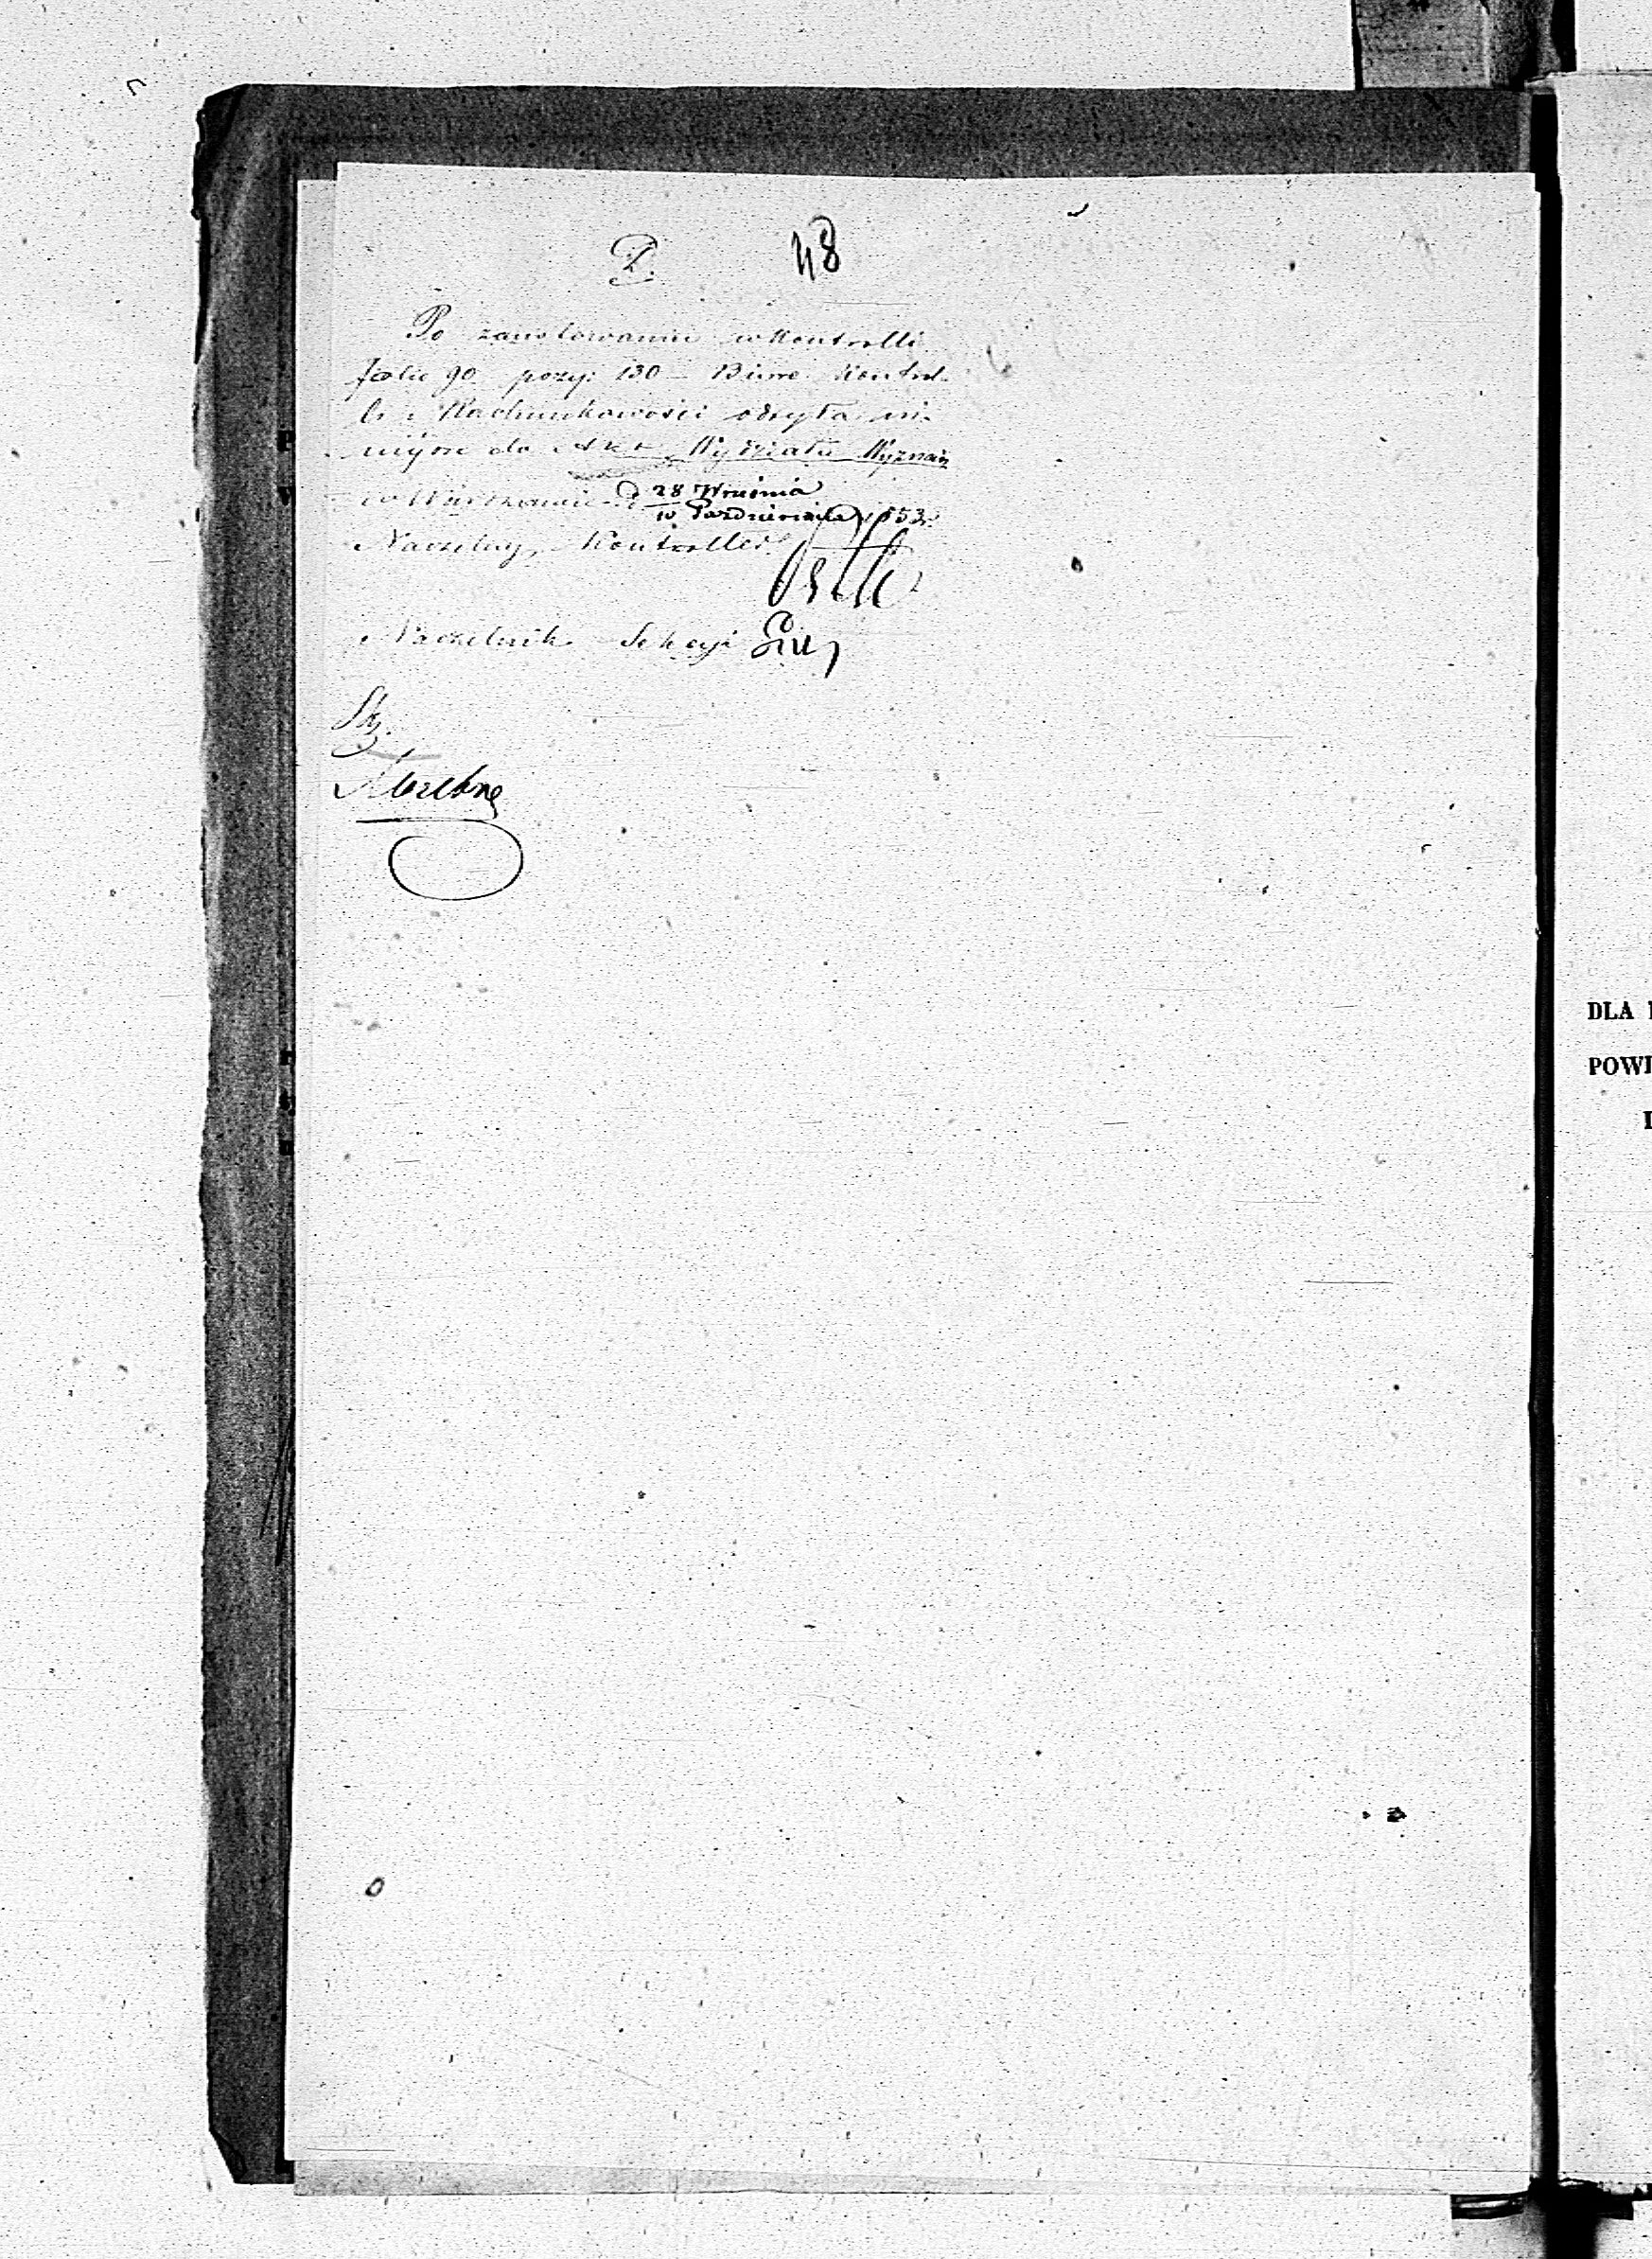 48
Po zanotowaniu w Kontrolli
folio 90 pozyj: 130 – Biuro Kontrol-
li i Rachunkowości odsyła ni-
niejsze do Akt Wydziału Wyznań
w Warszawie d 28 Września
10 Października 1853 r.
Naczelny Kontroller
Naczelnik Sekcyi
DLA
POWI